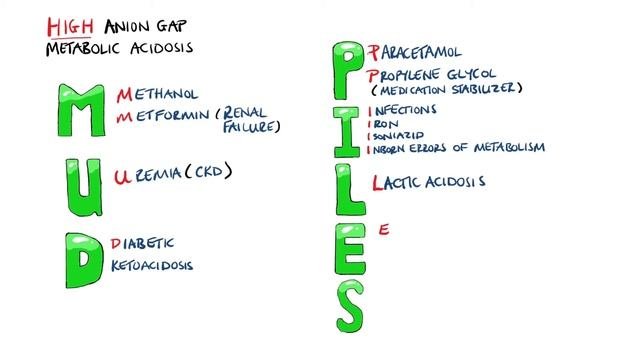 HIGH ANION GAP
METABOLIC ACIDOSIS
M
METHANOL
METFORMIN (RENAL
FAILURE)
U
UREMIA (CKD)
D
DIABETIC
KETOACIDOSIS
P
PARACETAMOL
PROPYLENE GLYCOL
(MEDICATION STABILIZER)
I
INFECTIONS
IRON
ISONIAZID
INBORN ERRORS OF METABOLISM
L
LACTIC ACIDOSIS
E
E
S